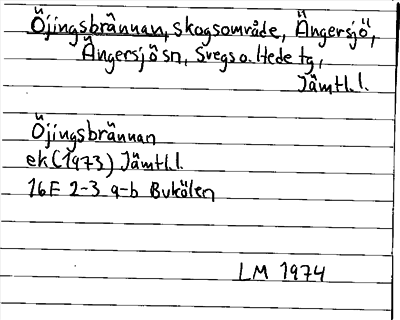 Öjingsbrännan, skogsområde, Ängersjö,
Ängersjö sn, Svegs o. Hede tg,
Jämtl.l.
Öjingsbrännan
ek (1973) Jämtl.l.
16F 2-3 a-b Bukölen
LM 1974